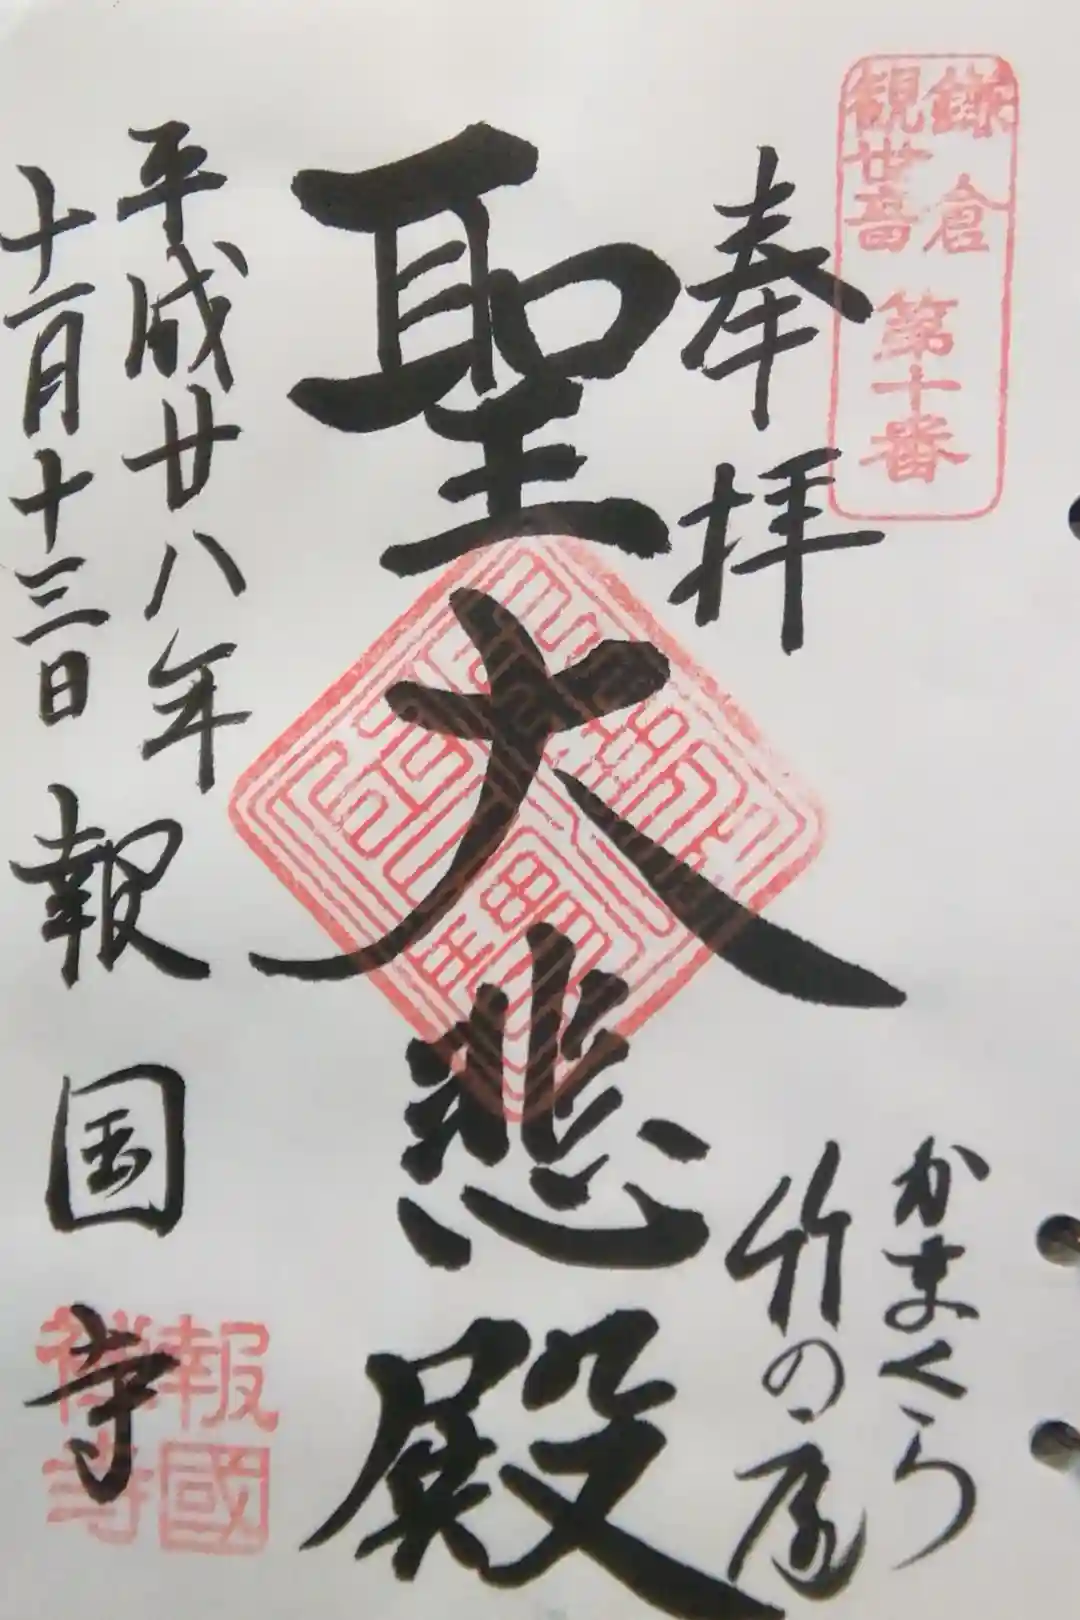 鎌倉
観世音
第十番
奉拝
かまくら
竹の庭
聖大悲殿
平成廿八年
十一月十三日
報国寺
報國
禅寺